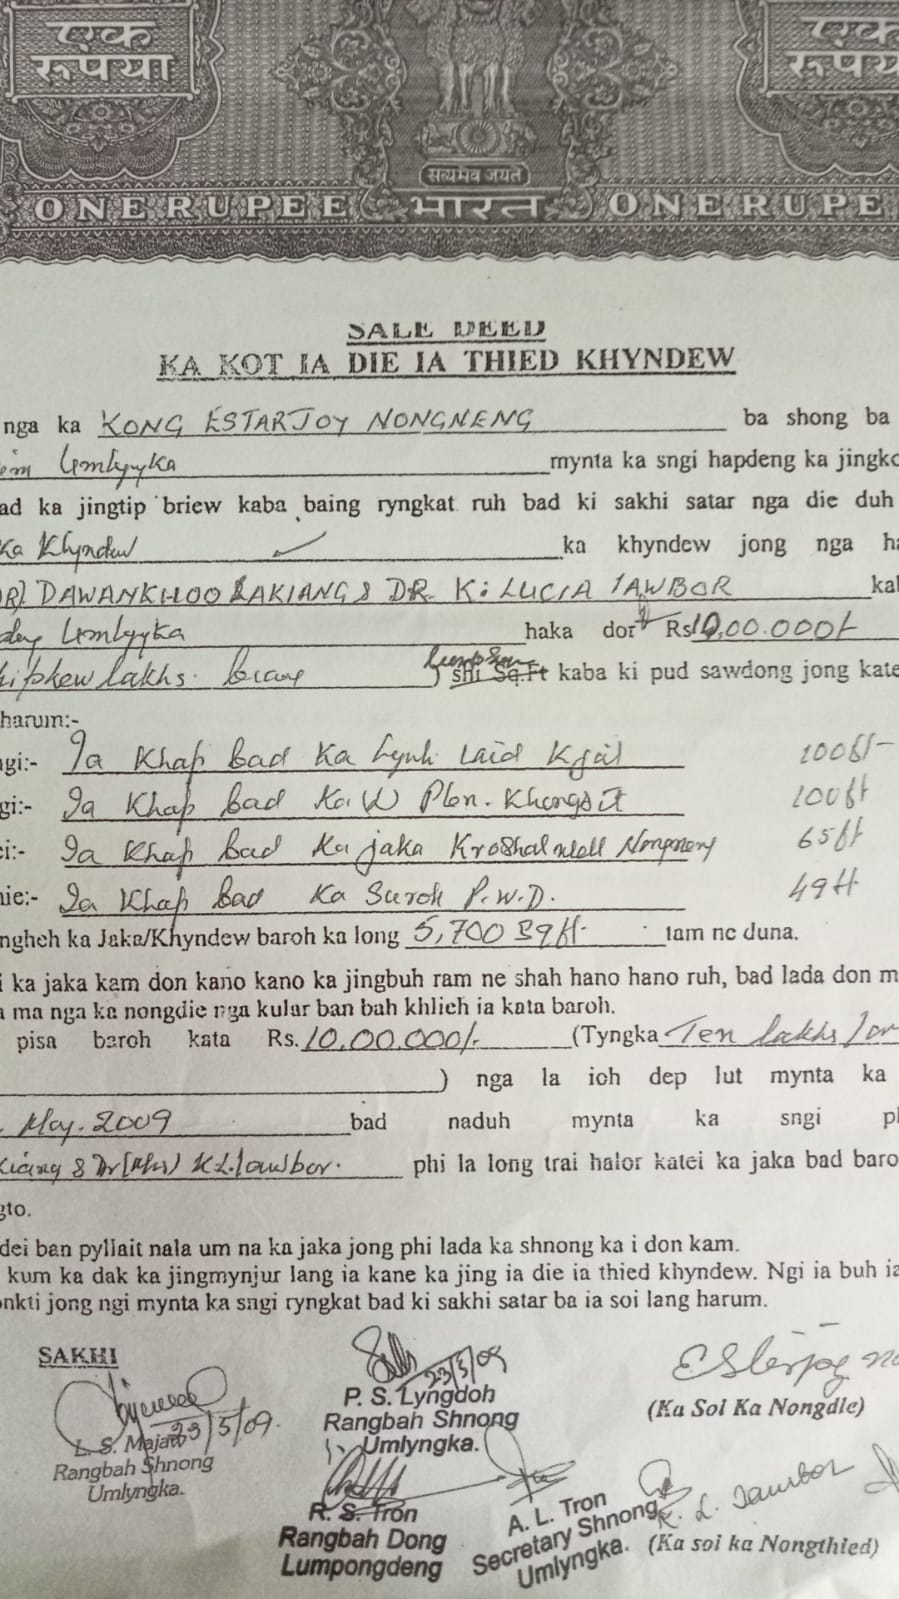 एक एक
रूपया रूपय
सत्यमेव जयते
ONE RUPEE भारत ONE RUPE
SALE DEED
KA KOT IA DIE IA THIED KHYNDEW
nga ka KONG ESTARJOY NONGNENG ba shong ba
Umlyngka mynta ka sngi hapdeng ka jingk
ad ka jingtip briew kaba baing ryngkat ruh bad ki sakhi satar nga die duh
Ka Khyndew ka khyndew jong nga ha
DAWANKHOO LAKIANG & DR. K. LUCIA IAWBOR ka
Umlyngka haka dor Rs 10,00.000/-
Lakhs. shi Sq.Ft kaba ki pud sawdong jong kate
harum:-
gi:- Ia Khap bad Ka Lynti Laid Kjat 100ft
gi:- Ia Khap bad Ka W Plen. Khongsit 100ft
ei:- Ia Khap bad Ka jaka Kroshalwell 65ft
ie:- Ia Khap bad Ka Surok P.W.D. 49ft
ngheh ka Jaka/Khyndew baroh ka long 5,700 Sqft. tam ne duna.
i ka jaka kam don kano kano ka jingbuh ram ne shah hano hano ruh, bad lada don m
a ma nga ka nongdie nga kular ban bah khlieh ia kata baroh.
pisa baroh kata Rs. 10,00.000/- (Tyngka Ten lakhs
) nga la ioh dep lut mynta ka
May. 2009 bad naduh mynta ka sngi p
kiang & Dr (Mrs) K L. Iawbor. phi la long trai halor katei ka jaka bad baro
gto.
dei ban pyllait nala um na ka jaka jong phi lada ka shnong ka i don kam.
kum ka dak ka jingmynjur lang ia kane ka jing ia die ia thied khyndew. Ngi ia buh ia
onkti jong ngi mynta ka sngi ryngkat bad ki sakhi satar ba ia soi lang harum.
SAKHI
23/5/09
P. S. Lyngdoh
Rangbah Shnong
Umlyngka.
(Ka Soi Ka Nongdie)
23/5/09.
L. S. Majaw
Rangbah Shnong
Umlyngka.
R. S. Tron
Rangbah Dong
Lumpongdeng
A. L. Tron
Secretary Shnong
Umlyngka.
K. L. Iawbor
(Ka soi ka Nongthied)